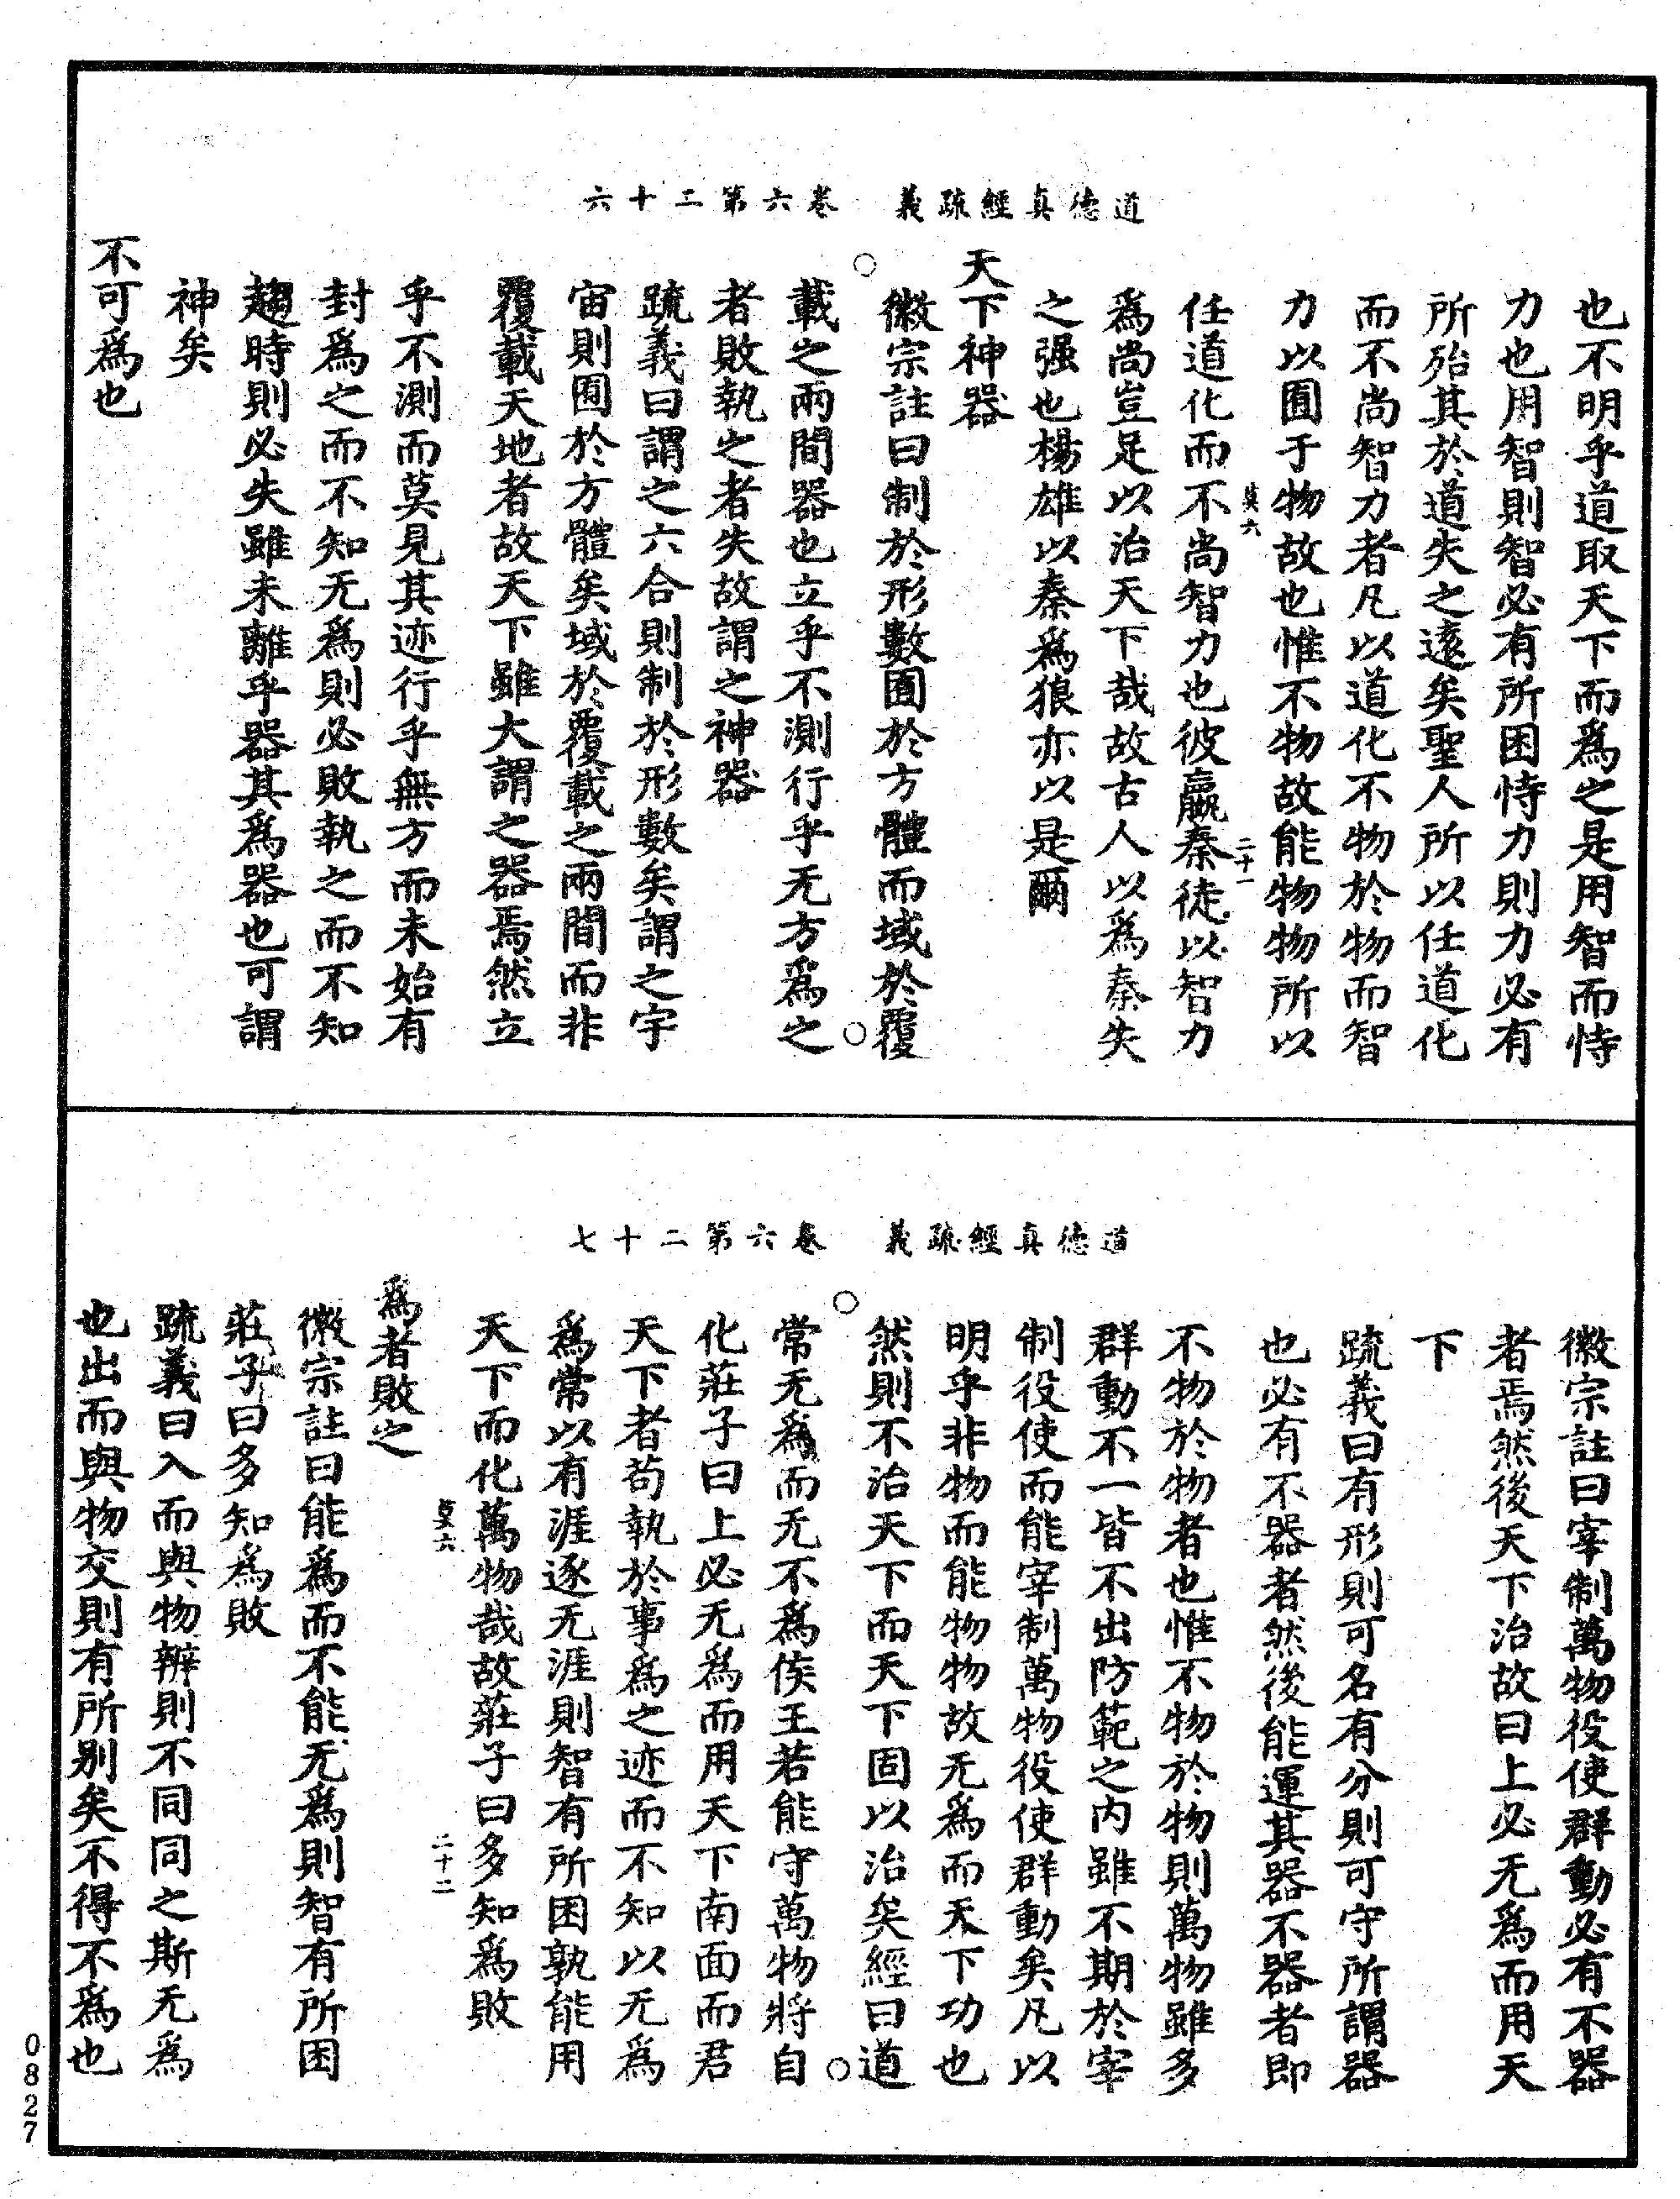 道德真經疏義　卷六第二十六
也不明乎道取天下而爲之是用智而恃
力也用智則智必有所困恃力則力必有
所殆其於道失之遠矣聖人所以任道化
而不尚智力者凡以道化不物於物而智
力以囿于物故也惟不物故能物物所以
莫六　二十一
任道化而不尚智力也彼嬴秦徒以智力
爲尚豈足以治天下哉故古人以爲秦失
之强也楊雄以秦爲狼亦以是爾
天下神器
徽宗註曰制於形數囿於方體而域於覆
載之兩間器也立乎不測行乎无方爲之
者敗執之者失故謂之神器
疏義曰謂之六合則制於形數矣謂之宇
宙則囿於方體矣域於覆載之兩間而非
覆載天地者故天下雖大謂之器焉然立
乎不測而莫見其迹行乎無方而未始有
封爲之而不知无爲則必敗執之而不知
趨時則必失雖未離乎器其爲器也可謂
神矣
不可爲也
道德真經疏義　卷六第二十七
徽宗註曰宰制萬物役使群動必有不器
者焉然後天下治故曰上必无爲而用天
下
疏義曰有形則可名有分則可守所謂器
也必有不器者然後能運其器不器者即
不物於物者也惟不物於物則萬物雖多
群動不一皆不出防範之内雖不期於宰
制役使而能宰制萬物役使群動矣凡以
明乎非物而能物物故无爲而天下功也
然則不治天下而天下固以治矣經曰道
常无爲而无不爲侯王若能守萬物將自
化莊子曰上必无爲而用天下南面而君
天下者苟執於事爲之迹而不知以无爲
爲常以有涯逐无涯則智有所困孰能用
天下而化萬物哉故莊子曰多知爲敗
莫六　二十二
爲者敗之
徽宗註曰能爲而不能无爲則智有所困
莊子曰多知為敗
疏義曰入而與物辨則不同同之斯无爲
也出而與物交則有所别矣不得不爲也
0827